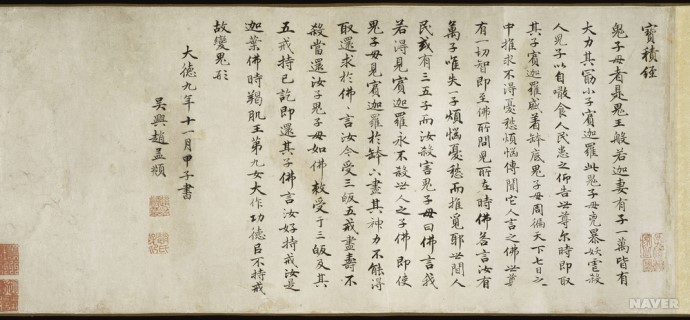 寶積經
鬼子母者是鬼王般若迦妻有子一萬皆有
大力其冣小子賓迦羅此鬼子母兇暴妖虐殺
人兒子以自噉食人民患之仰告世尊尔時即取
其子賓迦羅盛著鉢底鬼子母周徧天下七日之
中推求不得憂愁煩惱傳聞它人言之佛世尊
有一切智即至佛所問兒所在時佛答言汝有
萬子唯失一子煩惱憂愁而推覓耶世間人
民或有三五子而汝故害鬼子母白佛言我
若得見賓迦羅永不殺世人之子佛即使
鬼子母見賓迦羅於鉢下盡其神力不能得
取還求於佛〻言汝今受三皈五戒盡壽不
殺當還汝子鬼子母如佛敕受于三皈及其
五戒持已訖即還其子佛言汝好持戒汝是
迦葉佛時羯肌王第九女大作功德以不持戒
故變鬼形
大德九年十一月甲子書
吳興趙孟頫
NAVER